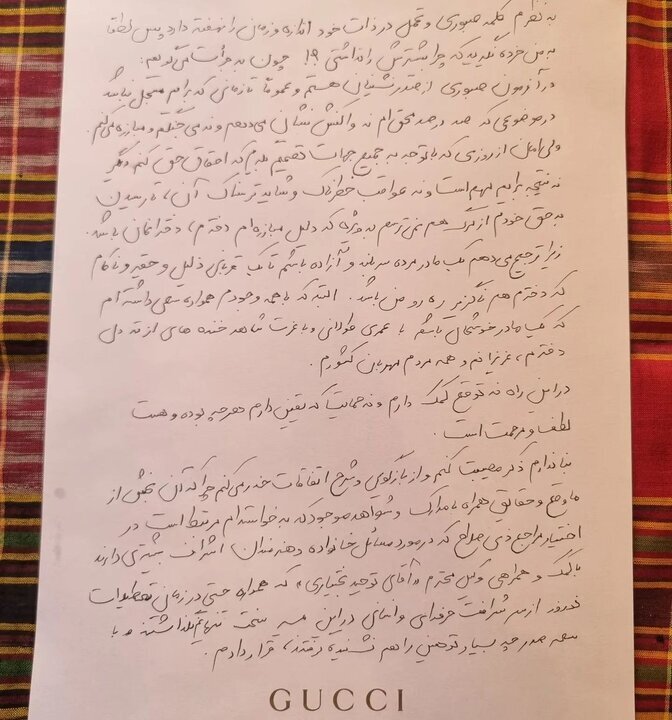 به نظرم کلمه صبوری و تحمل در ذات خود اندازه و زمان را نهفته دارد پس لطفا
به من خرده نگیرید که چرا بیشترش را نداشتی؟! چون به جرأت می‌گویم:
در آزمون صبوری از صدرنشینان هستم و عموماً تا زمانی که برایم مسجل نباشد
در موضوعی که صد درصد محق ام نه واکنش نشان می‌دهم و نه می‌جنگم و مبارزه می‌کنم
ولی امان از روزی که با توجه به جمیع جهات تصمیم بگیرم که احقاق حق کنم، دیگر
نه نتیجه برایم مهم است و نه عواقب خطرناک و شاید ترسناک آن، تا رسیدن
به حق خودم از مرگ هم نمی‌ترسم به ویژه که دلیل مبارزه‌ام دخترم، دخترانمان باشد.
زیرا ترجیح می‌دهم یک مادر مرده سربلند و آزاده باشم تا یک قربانی ذلیل و حقیر و ناکام
که دخترم هم ناگزیر ره رو من باشد. البته که با همه وجودم همواره سعی داشته ام
که یک مادر خوشحال باشم با عمری طولانی و با عزت شاهد خنده های از ته دل
دخترم، عزیزانم و همه مردم مهربان کشورم.
در این راه نه توقع کمک دارم و نه حمایت که یقین دارم هر چه بوده و هست
لطف و مرحمت است.
بنا ندارم ذکر مصیبت کنم و از بازگویی و شرح اتفاقات حذر می‌کنم چرا که آن بخش از
ماوقع و حقایق همراه با مدارک و شواهد موجود که به خواسته‌ام مرتبط است در
اختیار مراجع ذی صلاح که در مورد مسائل خانواده و هنرمندان اشراف بیشتری دارند
با کمک و همراهی وکیل محترم «آقای توحید بختیاری» که همواره حتی در زمان تعطیلات
نوروز از سر شرافت حرفه‌ای و انسانی در این مسیر سخت تنهایم نگذاشتند و با
سعه صدر چه بسیار توهینی را هم نشنیده گرفتند، قرار دادم.
GUCCI